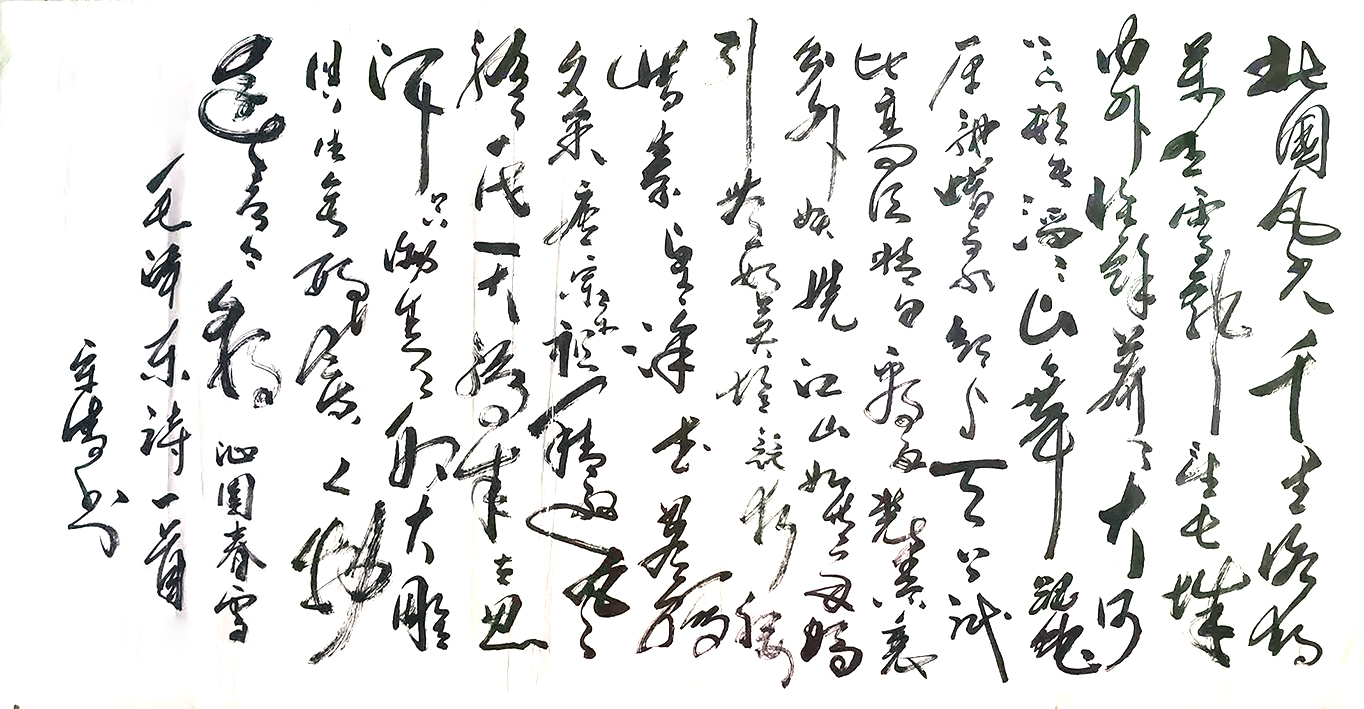 北國风光千里冰封
万里雪飘望长城
内外惟餘莽莽大河
上下顿失滔滔山舞银蛇
原驰蜡象欲与天公试
比高须晴日看红装素裹
分外妖娆江山如此多娇
引无数英雄竞折腰
惜秦皇汉武略输
文采唐宗宋祖稍逊风
骚一代天骄成吉思
汗只识弯弓射大雕
俱往矣数风流人物
还看今朝 沁园春雪
毛泽东詩一首
书